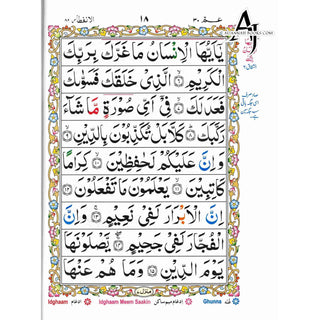 عمّ ٣٠
١٨
الانفطار ٨٢
ALJANNAHBOOKS.COM
يٰۤاَيُّهَا الْاِنْسَانُ مَا غَرَّكَ بِرَبِّكَ
الْكَرِيْمِ ۙ﴿۶﴾ الَّذِيْ خَلَقَكَ فَسَوّٰىكَ
فَعَدَلَكَ ۙ﴿۷﴾ فِيْۤ اَيِّ صُوْرَةٍ مَّا شَآءَ
رَكَّبَكَ ؕ﴿۸﴾ كَلَّا بَلْ تُكَذِّبُوْنَ بِالدِّيْنِ ۙ﴿۹﴾
وَاِنَّ عَلَيْكُمْ لَحٰفِظِيْنَ ۙ﴿۱۰﴾ كِرَامًا
كَاتِبِيْنَ ۙ﴿۱۱﴾ يَعْلَمُوْنَ مَا تَفْعَلُوْنَ ﴿۱۲﴾
اِنَّ الْاَبْرَارَ لَفِيْ نَعِيْمٍ ۚ﴿۱۳﴾ وَاِنَّ
الْفُجَّارَ لَفِيْ جَحِيْمٍ ۚۖ﴿۱۴﴾ يَّصْلَوْنَهَا
يَوْمَ الدِّيْنِ ﴿۱۵﴾ وَمَا هُمْ عَنْهَا
منزل ٧
Idghaam ادغام Idghaam Meem Saakin ادغام میم ساکن Ghunna غنہ